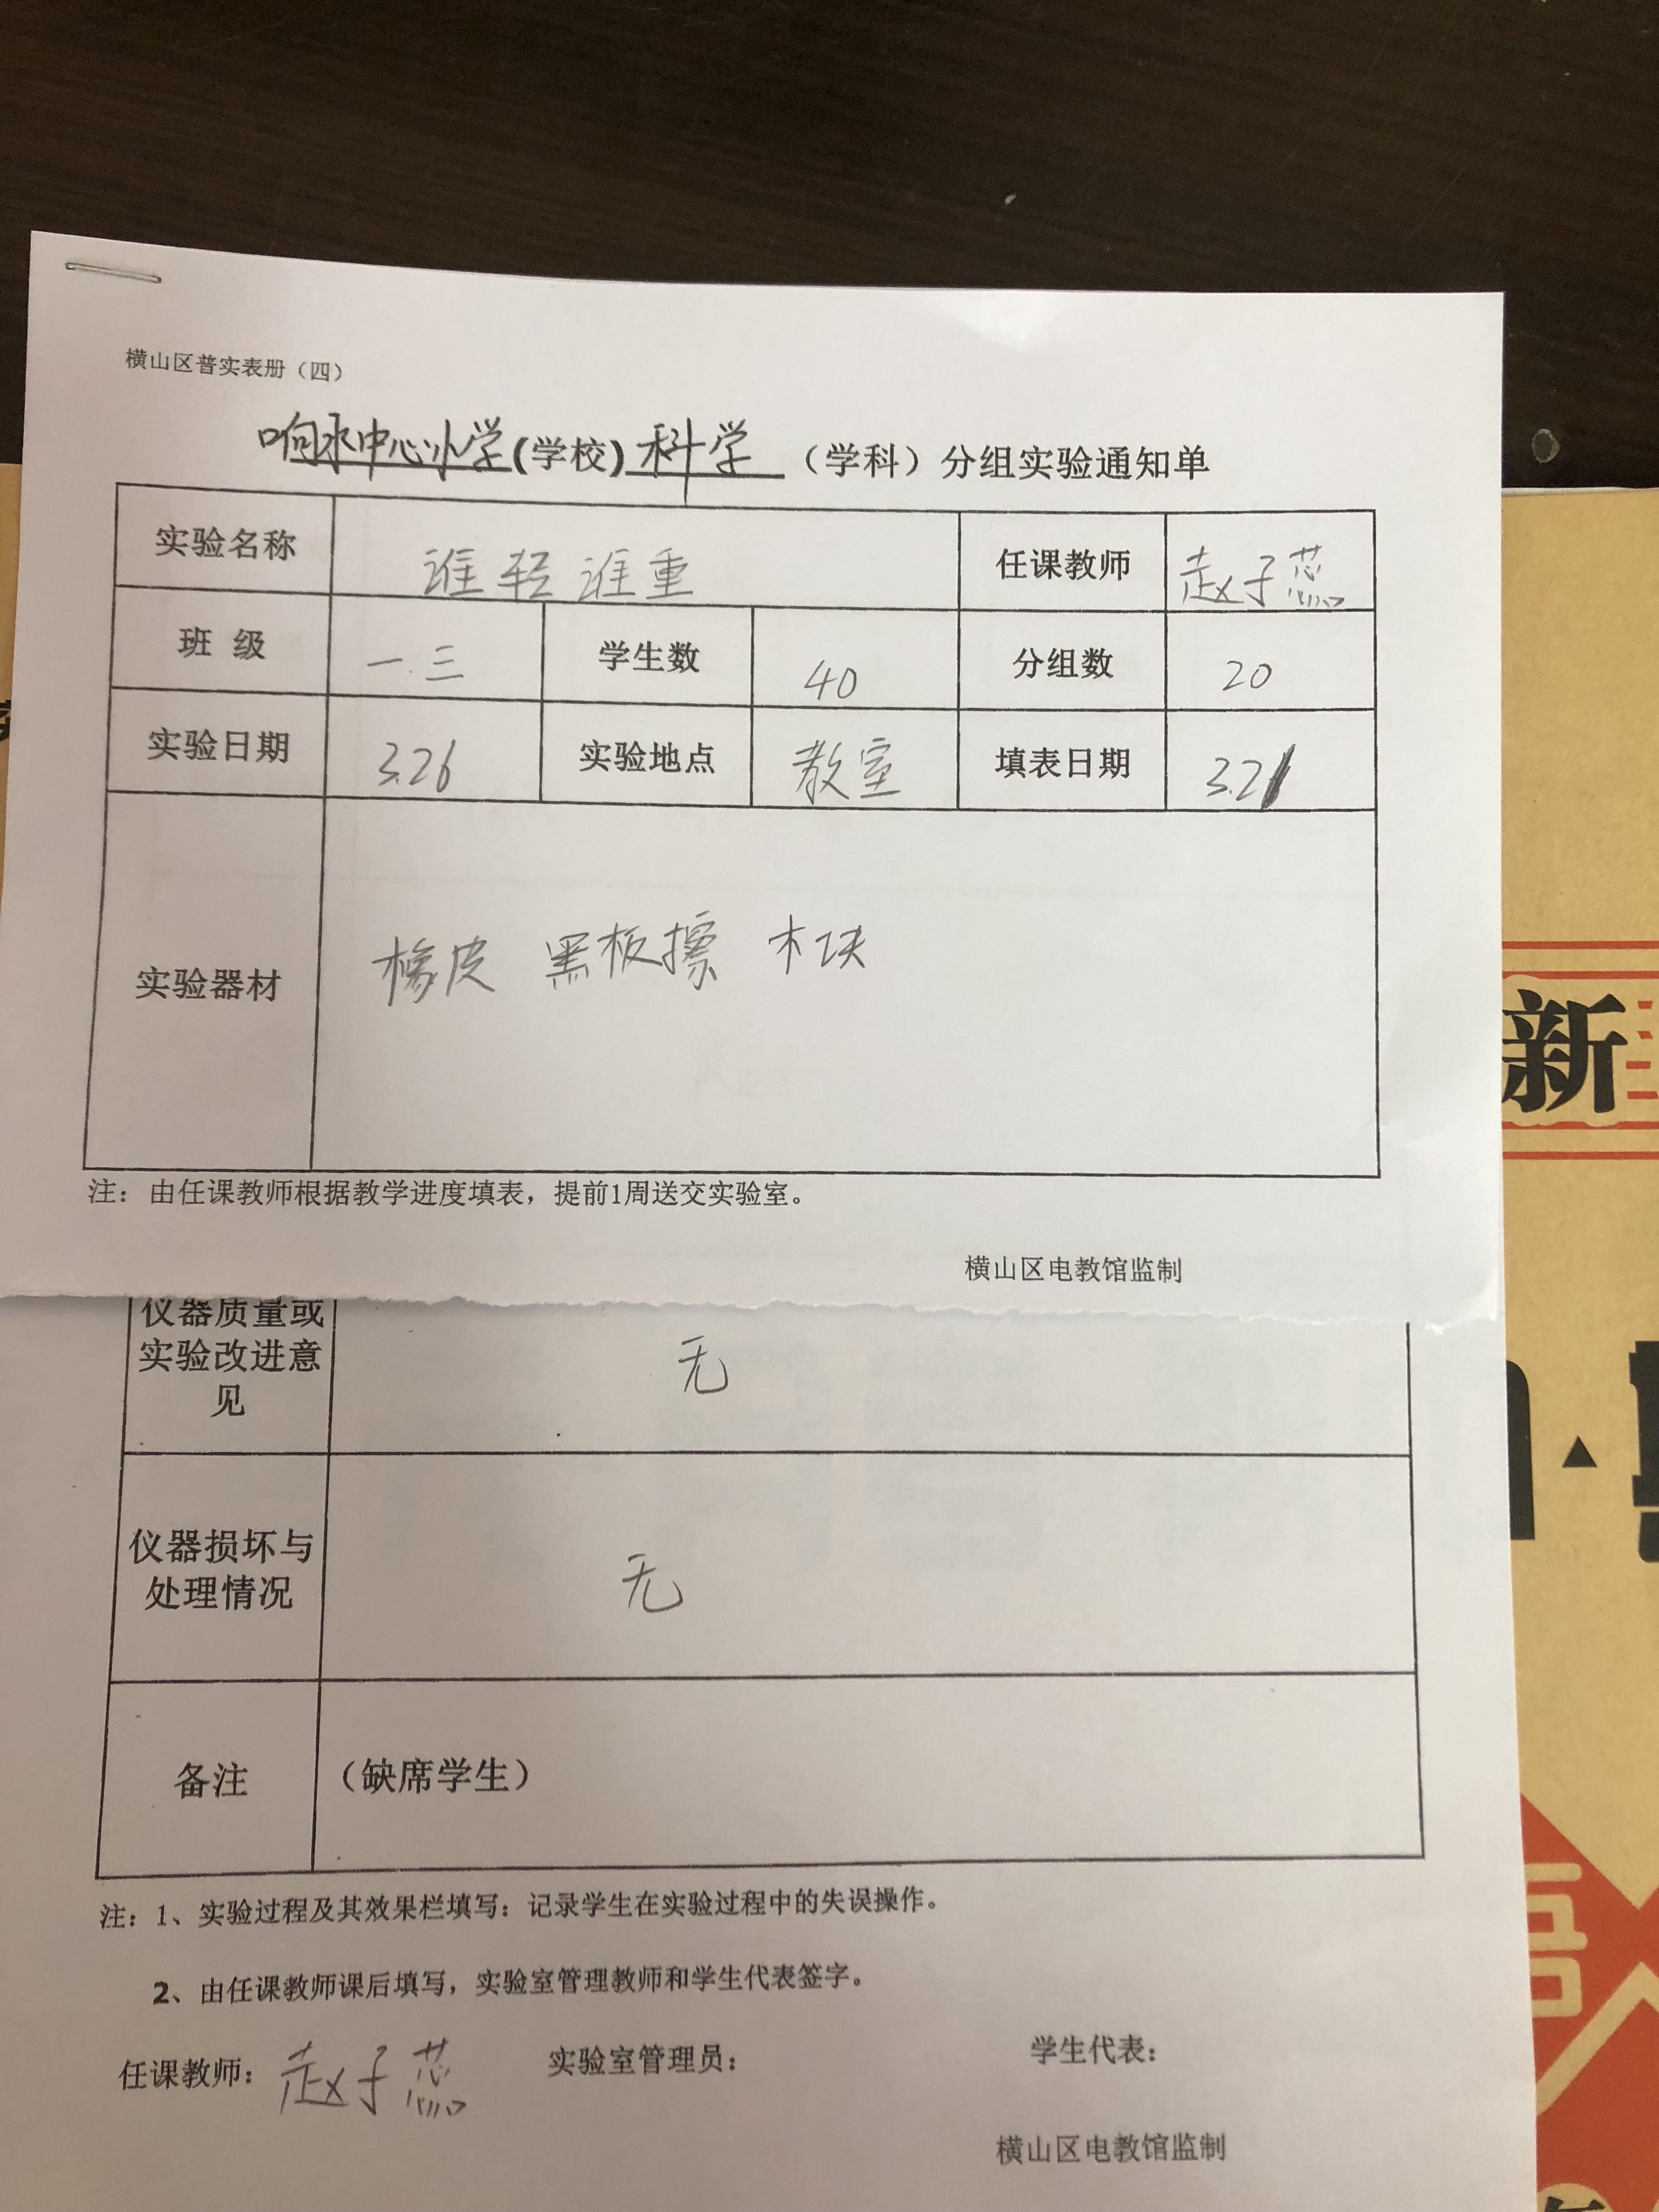 横山区普实表册（四）
响水中心小学(学校)科学（学科）分组实验通知单
实验名称 谁轻谁重 任课教师 赵子蕊
班 级 一.三 学生数 40 分组数 20
实验日期 3.26 实验地点 教室 填表日期 3.21
实验器材 橡皮 黑板擦 木块
注：由任课教师根据教学进度填表，提前1周送交实验室。
横山区电教馆监制
仪器质量或
实验改进意
见
无
仪器损坏与
处理情况
无
备注 （缺席学生）
注：1、实验过程及其效果栏填写：记录学生在实验过程中的失误操作。
2、由任课教师课后填写，实验室管理教师和学生代表签字。
任课教师：赵子蕊 实验室管理员： 学生代表：
横山区电教馆监制
新